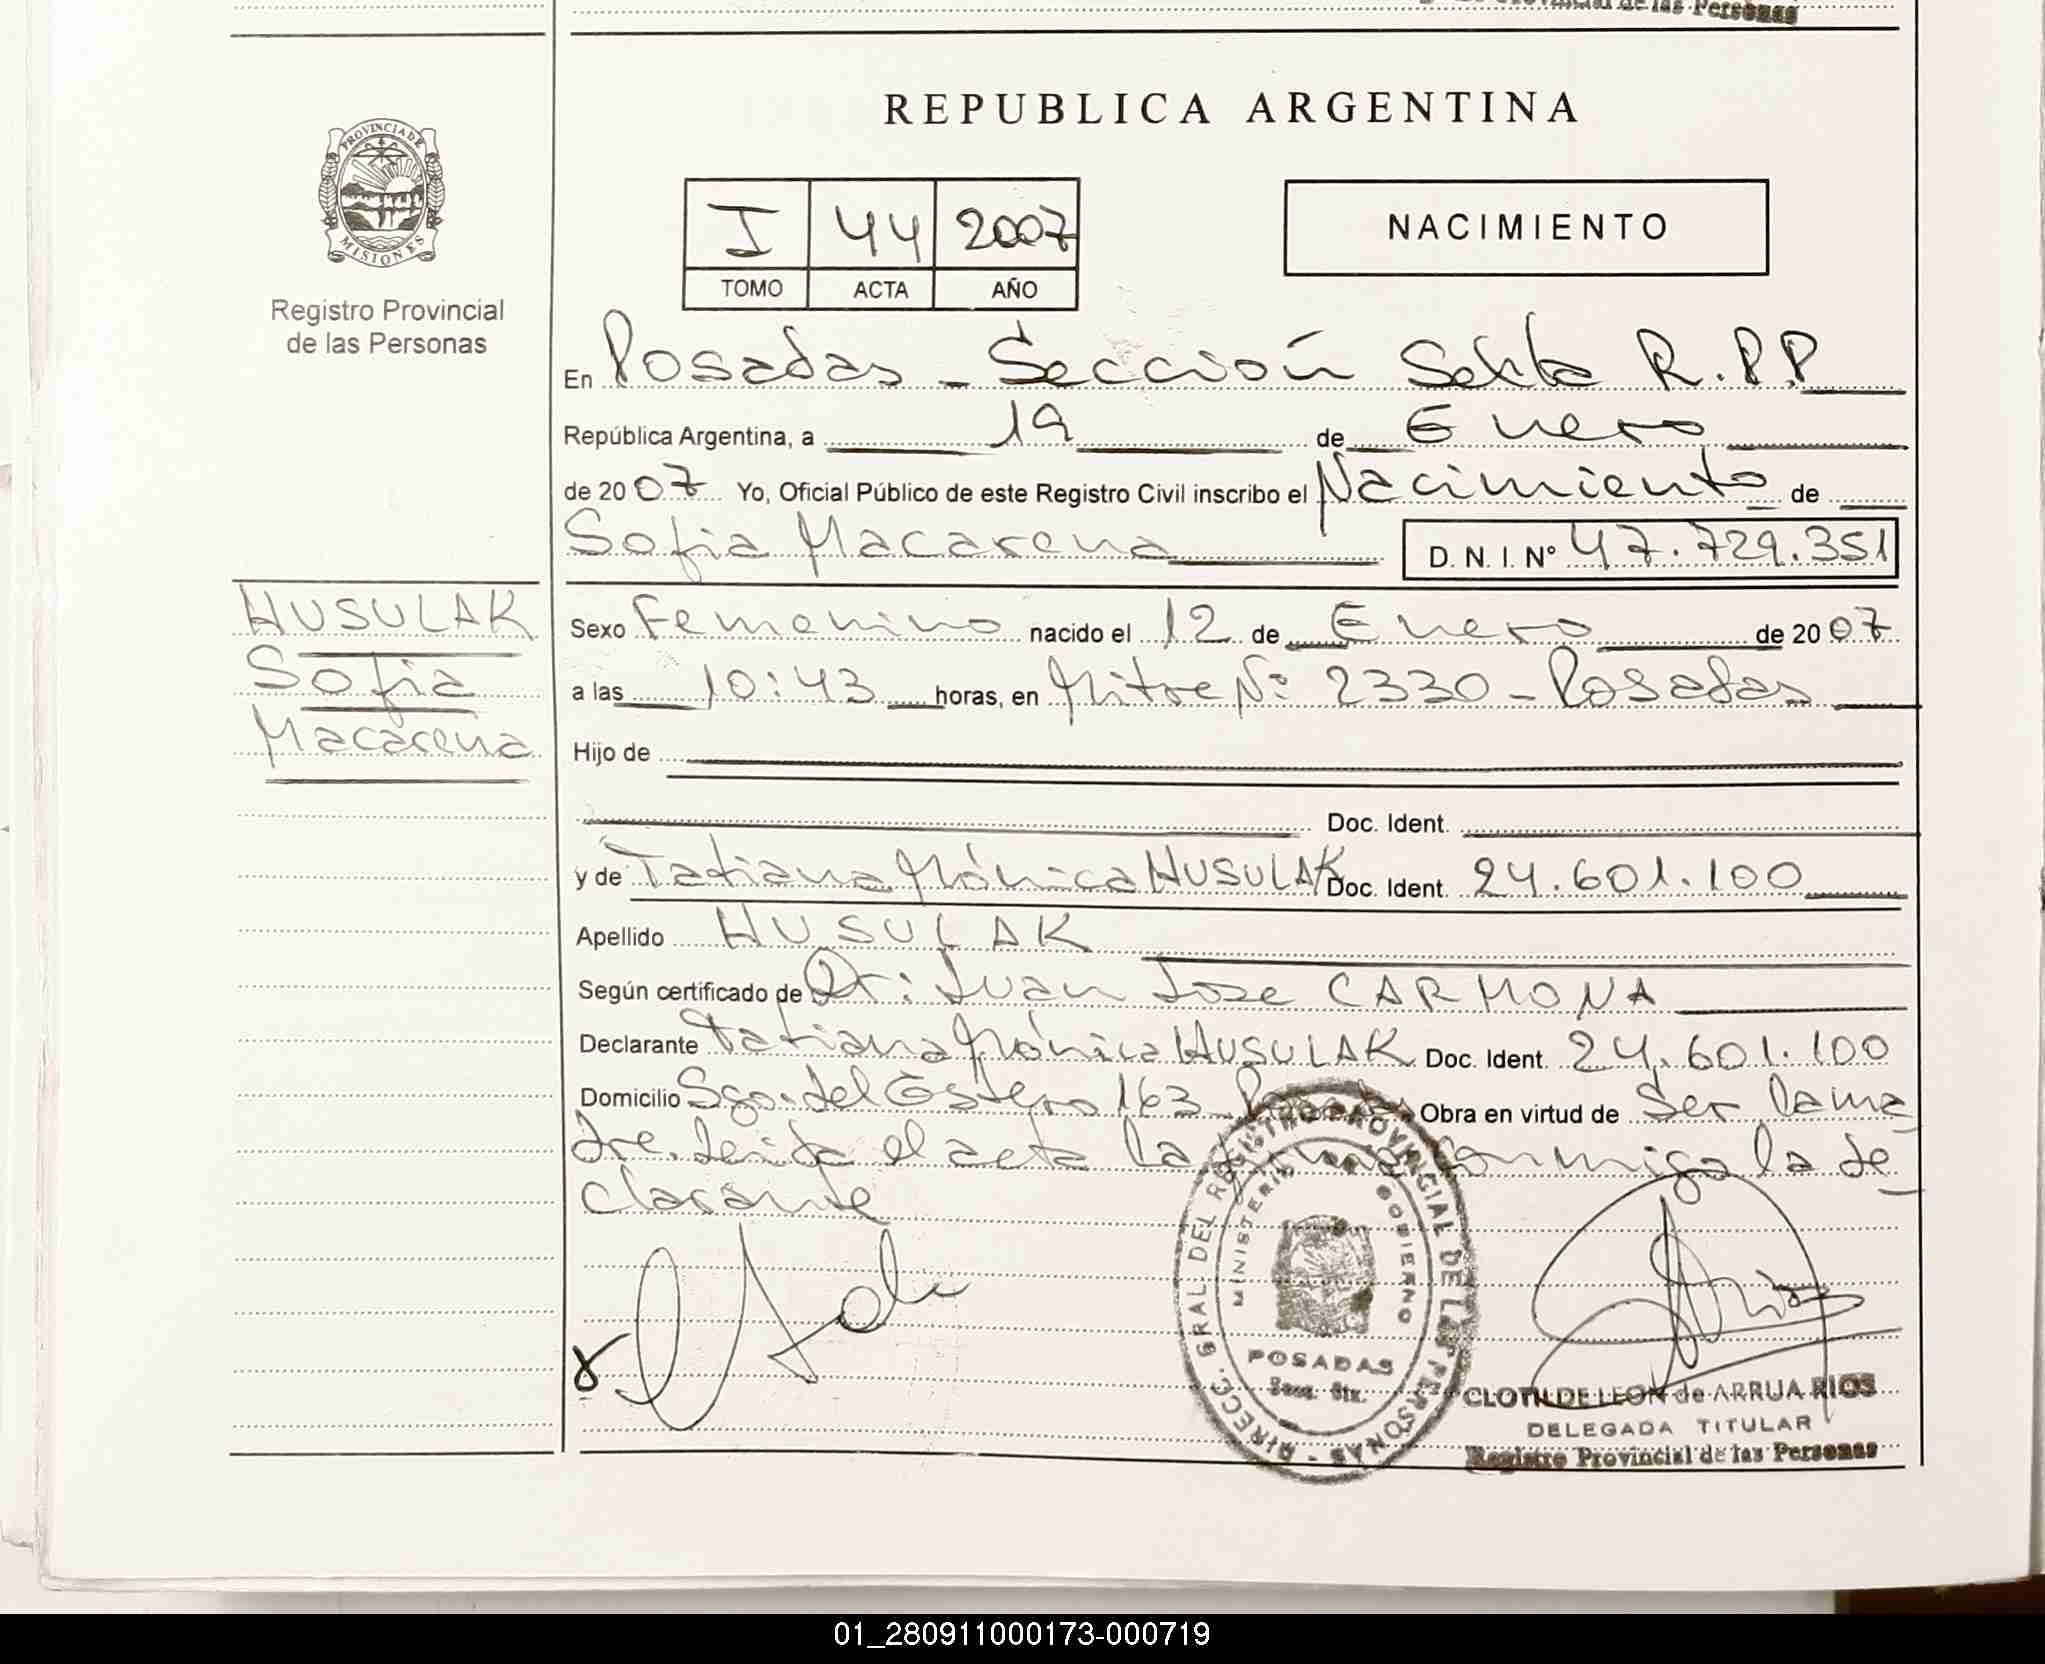 de las Personas
REPUBLICA ARGENTINA
PROVINCIA DE
MISIONES
Registro Provincial
de las Personas
I 44 2007
TOMO ACTA AÑO
NACIMIENTO
En Posadas - Sección Sexta R.P.P
República Argentina, a 19 de Enero
de 2007 Yo, Oficial Público de este Registro Civil inscribo el Nacimiento de
Sofia Macarena D. N. I. Nº 47.729.351
HUSULAK
Sofia
Macarena
Sexo Femenino nacido el 12 de Enero de 2007
a las 10:43 horas, en Mitre Nº 2330 - Posadas
Hijo de
Doc. Ident.
y de Tatiana Mónica HUSULAK Doc. Ident. 24.601.100
Apellido HUSULAK
Según certificado de Dr: Juan Jose CARMONA
Declarante Tatiana Mónica HUSULAK Doc. Ident. 24.601.100
Domicilio Sgo. del Estero 163 Posadas Obra en virtud de Ser la ma
dre. Leida el acta la firma conmigo la de
clarante
DIRECC. GRAL. DEL REGISTRO PROVINCIAL DE LAS PERSONAS
MINISTERIO DE GOBIERNO
POSADAS
Secc. 6ta.
CLOTILDE LEON de ARRUA RIOS
DELEGADA TITULAR
Registro Provincial de las Personas
01_280911000173-000719